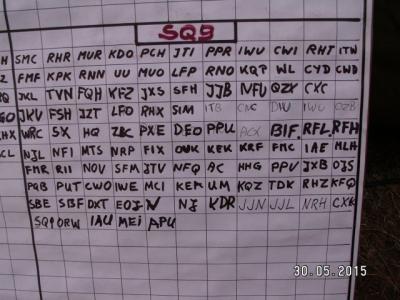 SQ9
H SMC RHR MUR KDO PCH JTI PPR IWU CWI RHT ITW
Z FMF KPK RNN UU MUO LFP RNO KQP WL CYD CWD
RQ JKL TVN FQH KFZ JXS SFH JJB NFU QZX CXC
GO JKV FSH JZT LFO RHX SIM ITB CNC DIU IWU OZB
HX WRC SX HQ ZBC PXE DEO PPU AOX BIF RFL RFH
CL NJL NFI MTS NRP FIX OUK KEK KRF FMC IAE MLH
FMR RII NOV SFM JTV NFQ AC HHG PPV JXB OJS
PQB PUT CWO IWE MCI KEM UM KQZ TDK RHZ KFQ
SBE SBF DXT EOJ N NJ KDR JJN JJL NRH CXK
SQ1ORW IAU MEI APU
30.05.2015